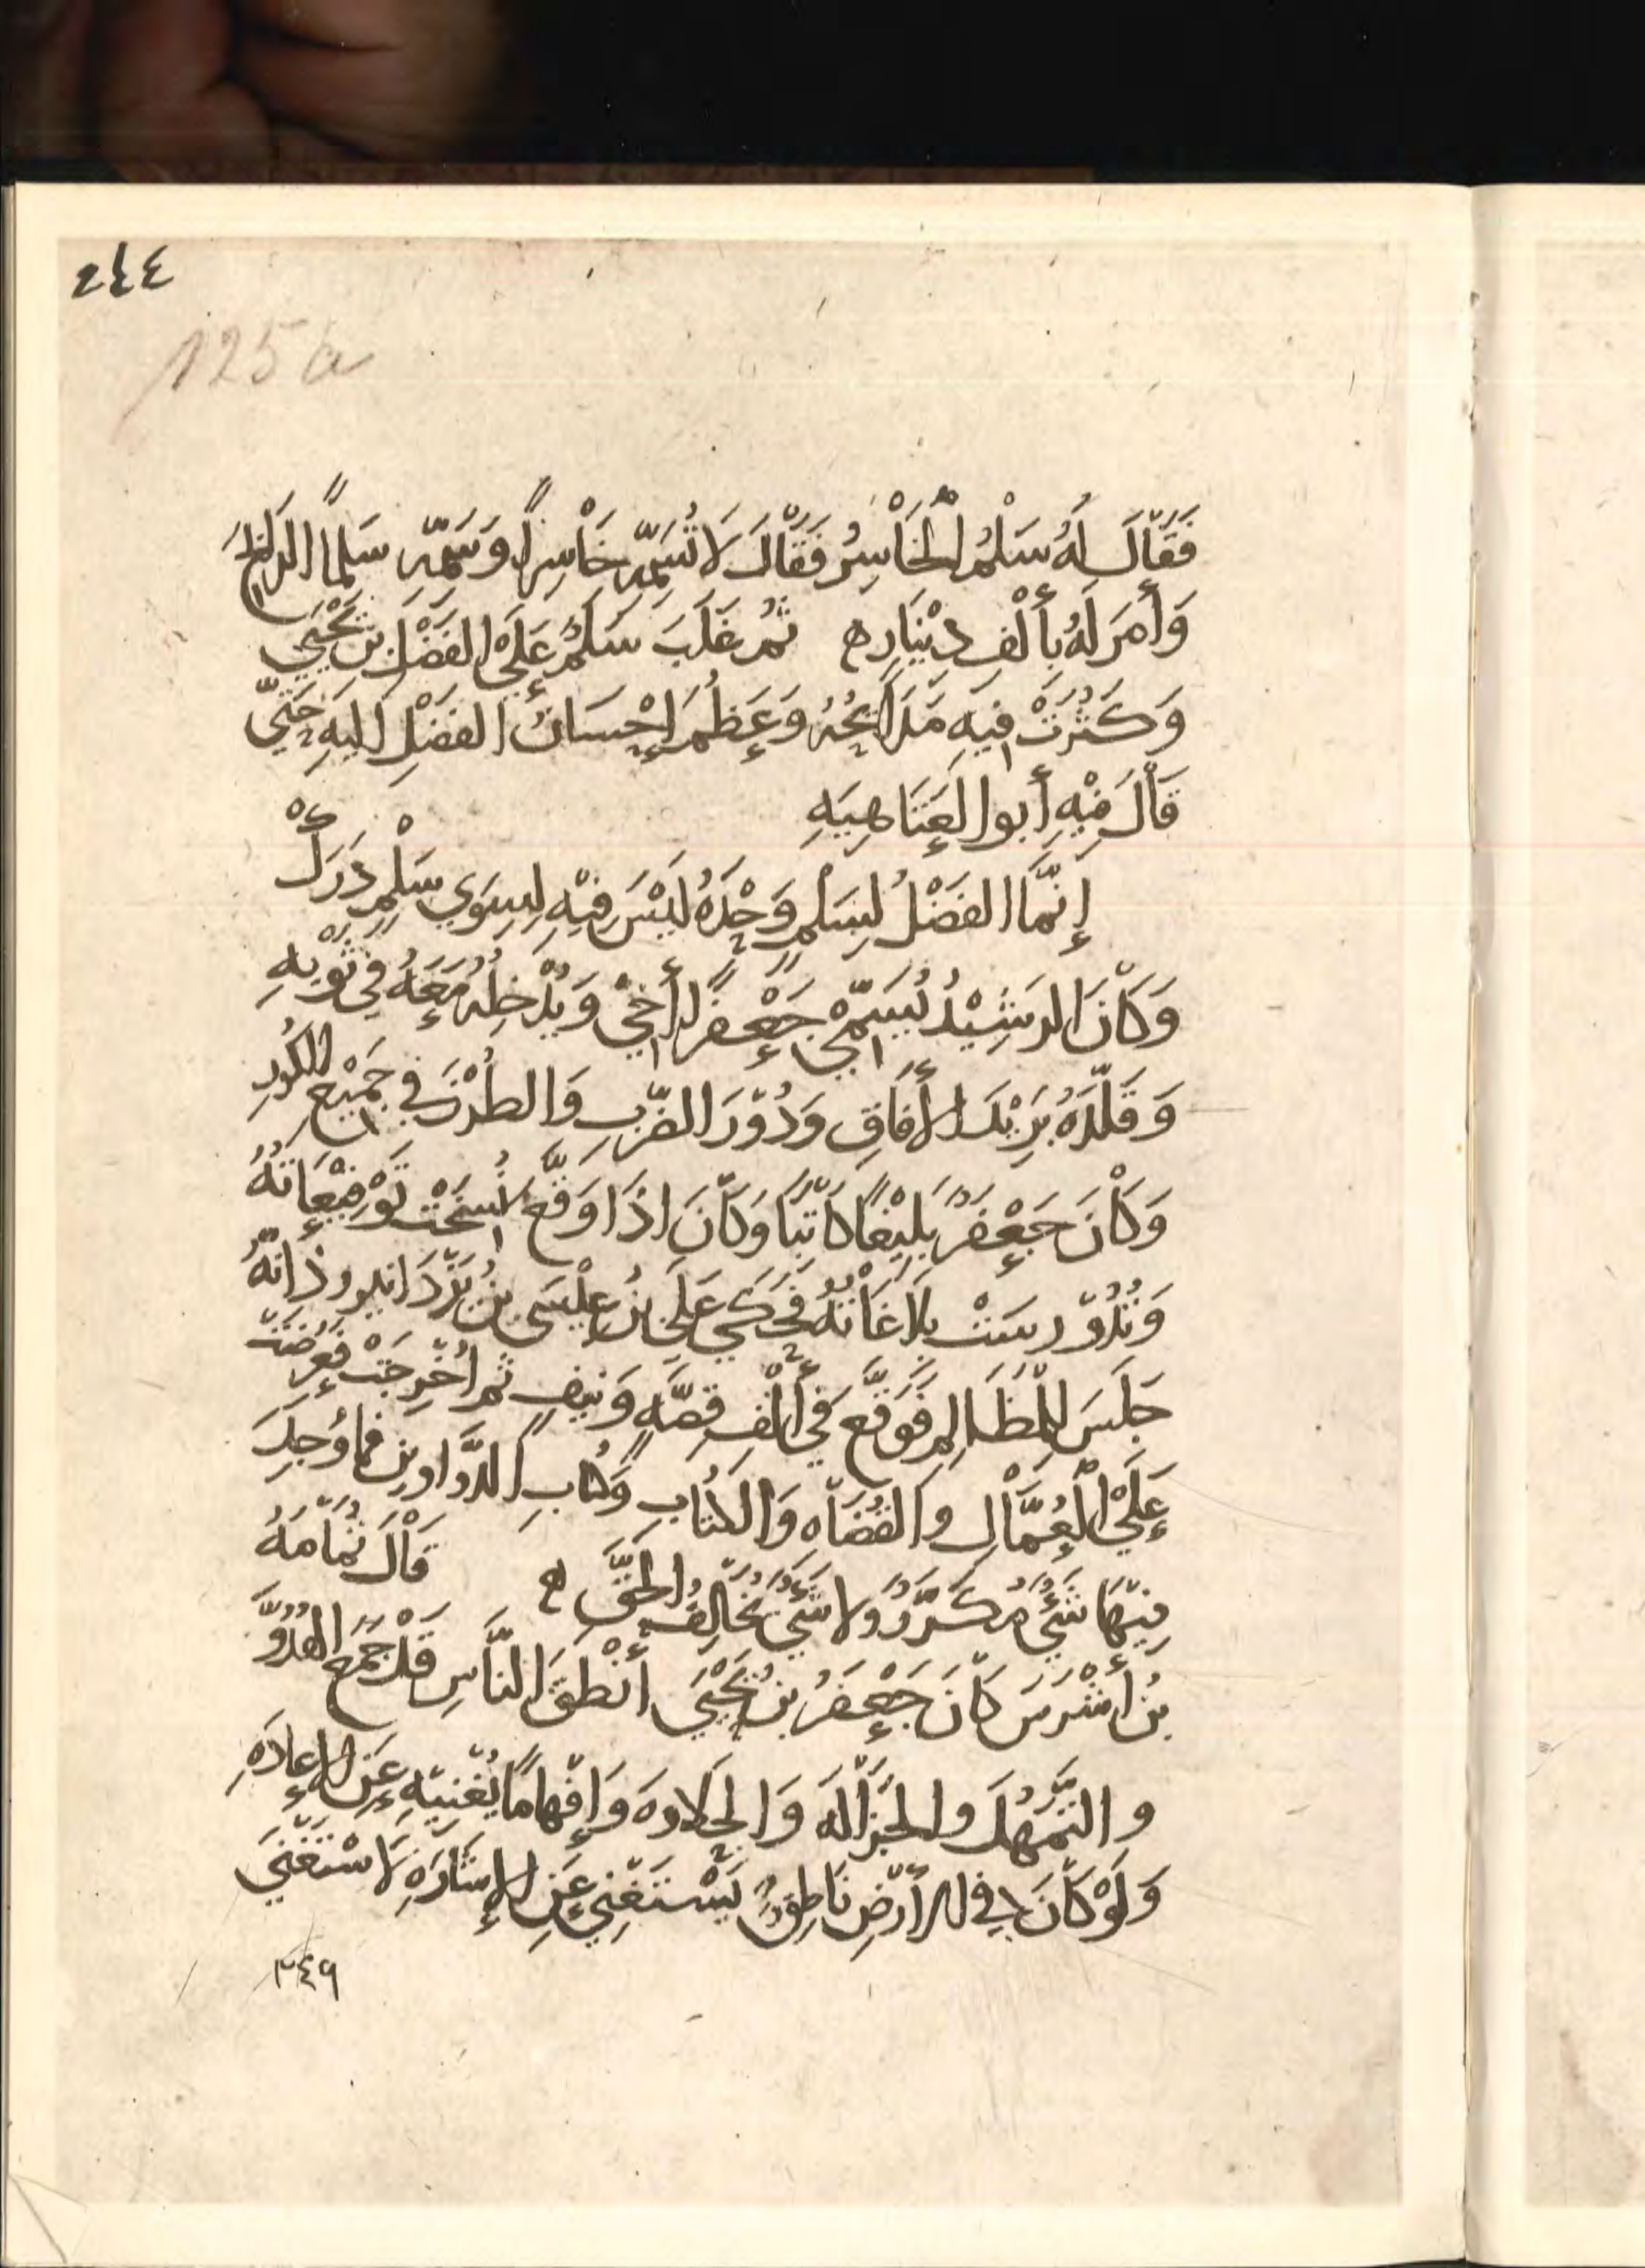 ٢٤٤
125a
فَقَالَ لَهُ سَلْمُ الْخَاسِرُ فَقَالَ لَا تُسَمِّهِ خَاسِراً وَسَمِّهِ سَلْماً الرَابِحَ
وَأَمَرَ لَهُ بِأَلْفِ دِيْنَارٍ ه ثُمَّ غَلَبَ سَلْمٌ عَلَى الفَضْلِ بْنِ يَحْيَي
وَكَثُرَتْ فِيهِ مَدَائِحُهُ وَعَظُمَ إِحْسَانُ الفَضْلِ اليَهِ حَتَّي
قَالَ فِيْهِ أَبُو العَتَاهِيَهِ
إِنَّمَا الفَضْلُ لِسَلْمٍ وَحْدَهُ لَيْسَ فِيْهِ لِسِوَي سَلْمٍ دَرَكْ
وَكَانَ الرَشِيْدُ يُسَمِّي جَعْفَراً أَخِي وَيُدْخِلُهُ مَعَهُ فِي ثَوْبِهِ
وَقَلَّدَهُ بَرِيْدَ الأَفَاقِ وَدُوْرَ الضَّرْبِ وَالطُرُزَ فِي جَمِيْعِ الكُوَرِ
وَكَانَ جَعْفَرٌ بَلِيْغاً كَاتِبًا وَكَانَ اذَا وَقَّعَ نُسِخَتْ تَوْقِيْعَاتُهُ
وَتُدُوْرِسَتْ بَلَاغَاتُهُ فَحَكَي عَلِيُ بْنُ عِيْسَى بْنِ يَزْدَانيروذ انَّهُ
جَلَسَ لِلْمَظَالِمِ فَوَقَّعَ فِي أَلْفِ قِصَّهٍ وَنَيِفٍ ثُمَّ أُخْرِجَتْ فَعُرِضَتْ
عَلَي الْعُمَّالِ وَالقُضَاهِ وَالكُتَّابِ وَكُتَّابِ الدَّوَاوِينِ فَمَا وُجِدَ
مِنْهَا شَيْءٌ مُكَرَّرٌ وَلَا شَيْءٌ يُخَالِفُ الحَقَّ ه قَالَ ثُمَامَهُ
بْنُ أَشْرَسَ كَانَ جَعْفَرُ بْنُ يَحْيَي أَنْطَقَ النَّاسِ قَدْ جَمَعَ الهُدُوَّ
وَالتَّمَهُلَ وَالجَزَالَهَ وَالحَلَاوَهَ وَإِفْهَامًا يُغْنِيْهِ عَنِ الإِعَادَهِ
وَلَوْ كَانَ فِي الأَرْضِ نَاطِقٌ يَسْتَغْنِي عَنِ الإِشَارَهِ لَاسْتَغْنَي
٢٤٩